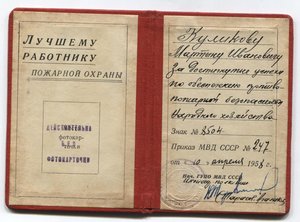 ЛУЧШЕМУ
РАБОТНИКУ
ПОЖАРНОЙ ОХРАНЫ
ДЕЙСТВИТЕЛЬНА
фотокар-
БЕЗ
ФОТОКАРТОЧКИ
Куликову
Ивановичу
За достигнутые успехи
по обеспечению противо-
пожарной безопасности
народного хозяйства
Знак № 8504
Приказ МВД СССР № 247
от апреля 195
НАЧ. ГУПО МВД СССР